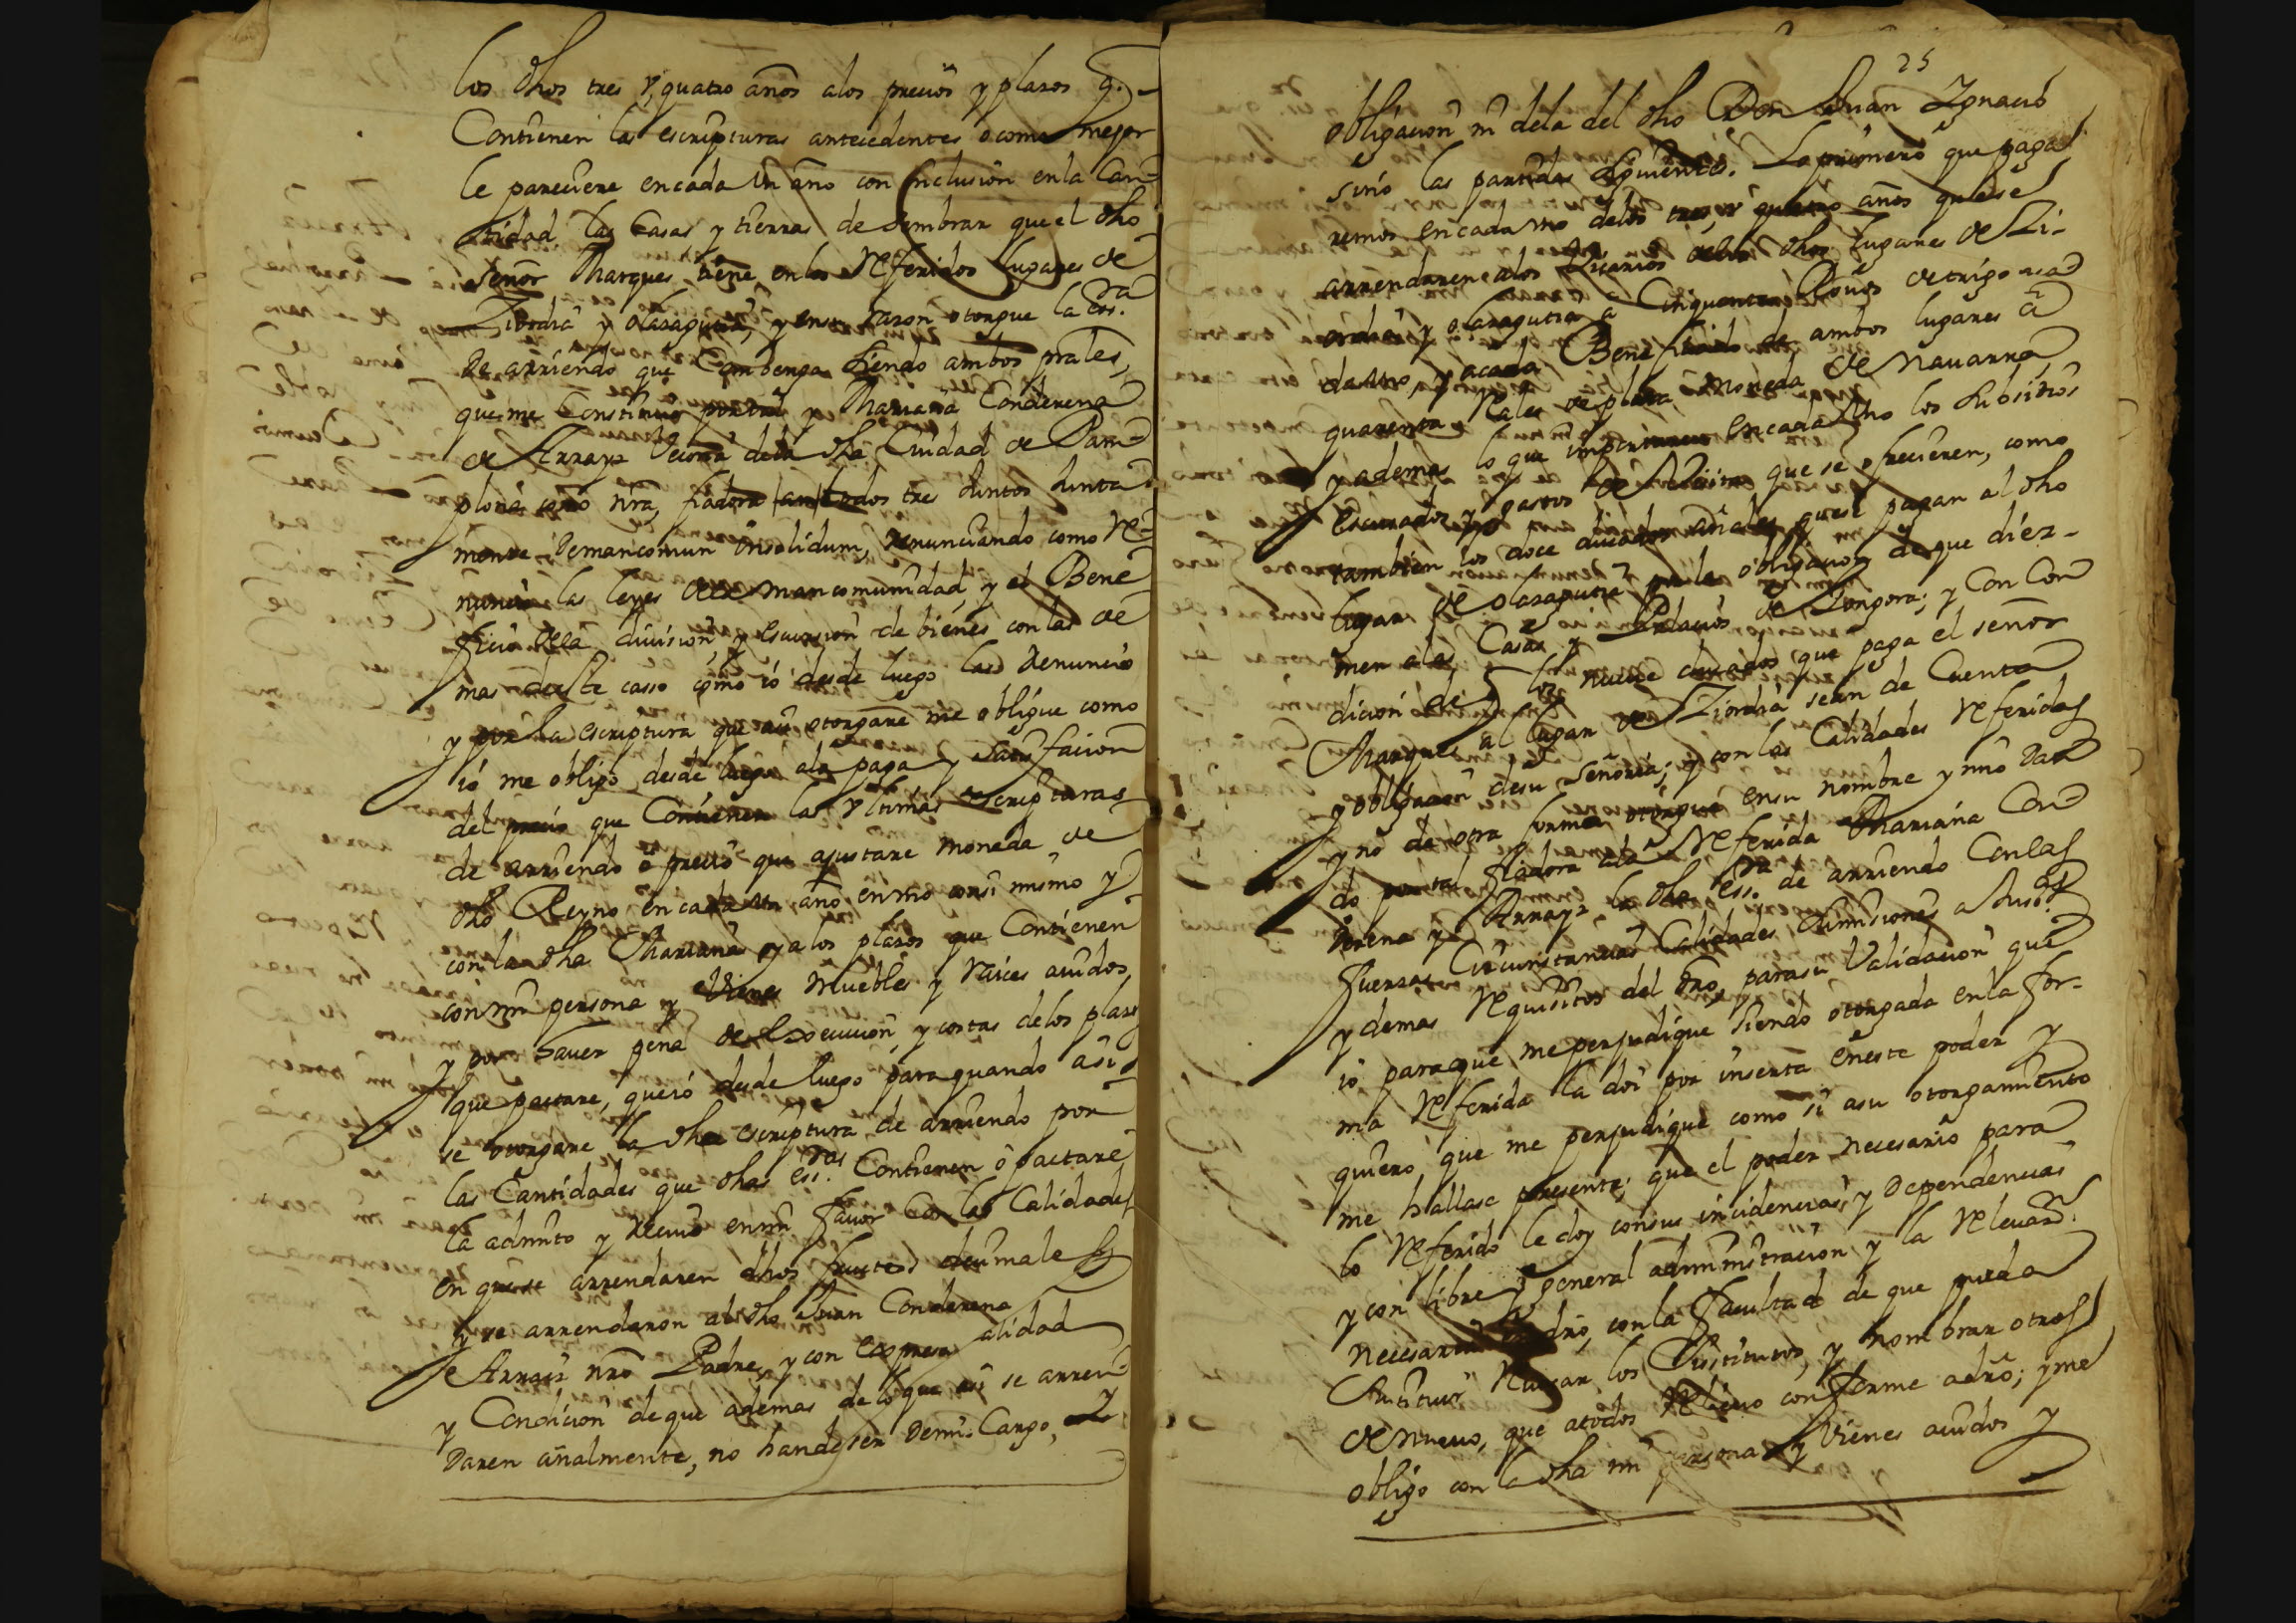 los dhos tres y quatro años alos precios y plazos q.
Contienen las escripturas antecedentes o como mejor
le pareciere encada Un año con inclusion enla Can
tidad las Casas y tierras de sembrar que el dho
señor Marques tiene enlos Referidos lugares de
Ziordia y olazagutia, y ensu razon otorgue la ess.ra
de arriendo que Combenga siendo ambos prales,
que me Constituio por tal y Mariana Conderena
de Arrayz Vecina dela dha Ciudad de Pam
plona como nra, fiadora todos tres Juntos Junta
mente Demancomun insolidum, renunciando como Re
nuncio las leyes dela mancomunidad y el Bene
ficio dela division, y escursion de bienes con las de
mas deste casso como io desde luego las Renuncio
y por la escriptura que asi otorgare me obligue como
io me obligo desde luego ala paga y satisfacion
del precio que Contienen las ultimas escripturas
de arriendo o precio que ajustare moneda de
dho Reyno encada un año enmo consi mismo y
con la dha Mariana y alos plazos que Contienen
con mi persona y Vienes Muebles y raices auidos,
y por hauer pena de execucion, y costas delos plazos
que pactare, quero desde luego para quando asi
se otorgare la dha escriptura de arriendo por
las Cantidades que dhas ess.ras Contienen o pactare
la admito y reciuo enmi fauor Con las Calidades
en que se arrendaren dhos fructos decimales
y se arrendaron al dho Juan Conderena
de Arraiz nro Padre, y con expresa alidad
y Condicion de que ademas delo que asi se arren
daren añalmente, no hande ser demi Cargo,
25
obligacion ni dela del dho Don Juan Ignacio
sino las partidas siguientes. La primero que paga
remos encada vno delos tres, y quatro años que se
arrendaren alos Vicarios delos dhos lugares de Zi-
ordia y olazagutia a Cinquenta Rouos de trigo aca
da uno, y acada Beneficiado de ambos lugares a
quarenta Rales de plata moneda de Nauarra,
y ademas lo que importaren encada Año los Subsidios
Escusados y gastos de que se ofrecieren, como
tambien los doce ducados añales que se pagan al dho
lugar de olazagutia por la obligacion de que diez-
men alas Casas y Palacios de Zongora; y Con Con
dicion de los nueue ducados que paga el señor
Marques al lugar de Ziordia sean de Cuenta
y obligacion desu señoria; y con las Calidades referidas
y no de otra forma otorgue ensu nombre y mio Dan
do por tal fiadora ala Referida Mariana Con
derena y Arrayz la dha ess.ra de arriendo Conlas
fuerzas Circunstancias Calidades sumisiones a Jus.as
y demas requisitos del dro, parasu Validacion que
io paraque meperjudique siendo otorgada enla for-
ma referida la doi por inserta eneste poder y
quiero que me perjudique como si asu otorgamiento
me hallase presente; que el poder necesario para
lo referido le doy consus incidencias, y Dependencias
y con libre y general administracion y la releuaz.n
necesaria dro, con la facultad de que pueda
Sustituir Reuocar los Sustitutos, y nombrar otros
de nueuo, que atodos Relieuo conforme adro; y me
obligo con la dha mi persona y Vienes auidos y